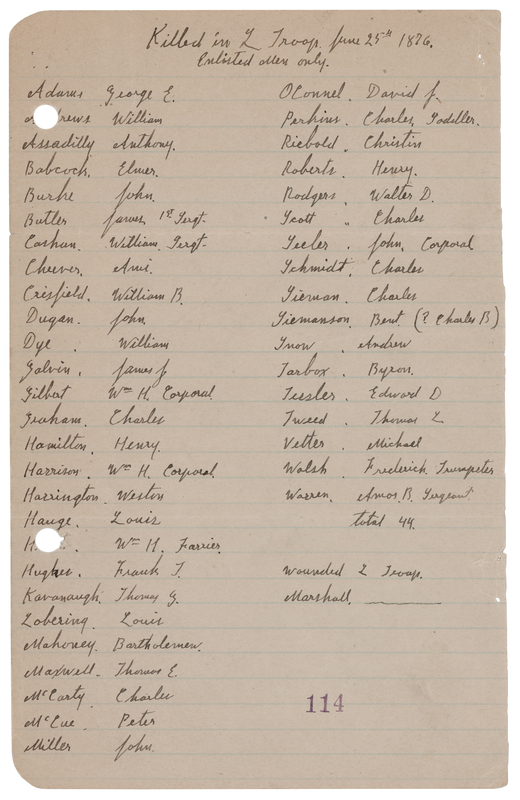 Killed in L Troop. June 25th 1876.
Enlisted Men only.
Adams George E.
William
Assadilly Anthony.
Babcock. Elmer.
Burke John.
Butler James 1st Sergt.
Cashan. William. Sergt.
Cheever. Ami.
Crisfield. William B.
Dugan. John.
Dye. William
Galvin. James J
Gilbert Wm H. Corporal.
Graham. Charles
Hamilton. Henry.
Harrison. Wm H. Corporal.
Harrington. Weston
Hauge. Louis
Wm H. Farrier.
Hughes. Frank T.
Kavanaugh. Thomas G.
Lobering. Louis
Mahoney. Bartholemew.
Maxwell. Thomas E.
McCarty. Charles
McCue. Peter
Miller John.
OConnel. David J.
Perkins. Charles, Saddler.
Riebold. Christin
Roberts. Henry.
Rodgers. Walter D.
Scott. Charles
Seeler. John, Corporal
Schmidt. Charles
Sieman. Charles
Siemanson. Bent (? Charles B)
Snow. Andrew
Tarbox. Byron.
Tessler. Edward D
Tweed. Thomas L
Vetter. Michael
Walsh. Frederick. Trumpeter
Warren. Amos B. Sergeant
total 44.
Wounded L Troop.
Marshall.
114